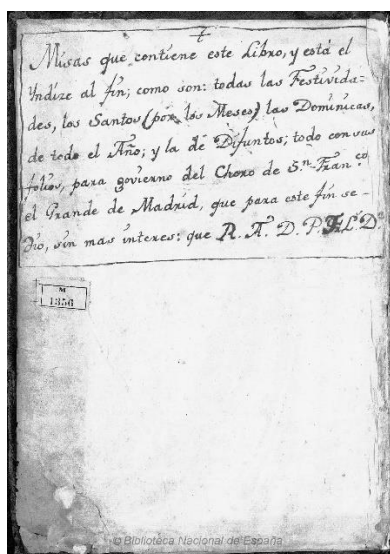 Misas que contiene este Libro, y está el
Yndize al fin; como son: todas las Festivida=
des, los Santos (por los Meses) las Dominicas,
de todo el Año; y la de Difuntos; todo con sus
folios, para govierno del Choro de Sn. Franco.
el Grande de Madrid, que para este fin se-
dio, sin mas interes: que R. A. D. P.
M
1356
© Biblioteca Nacional de España